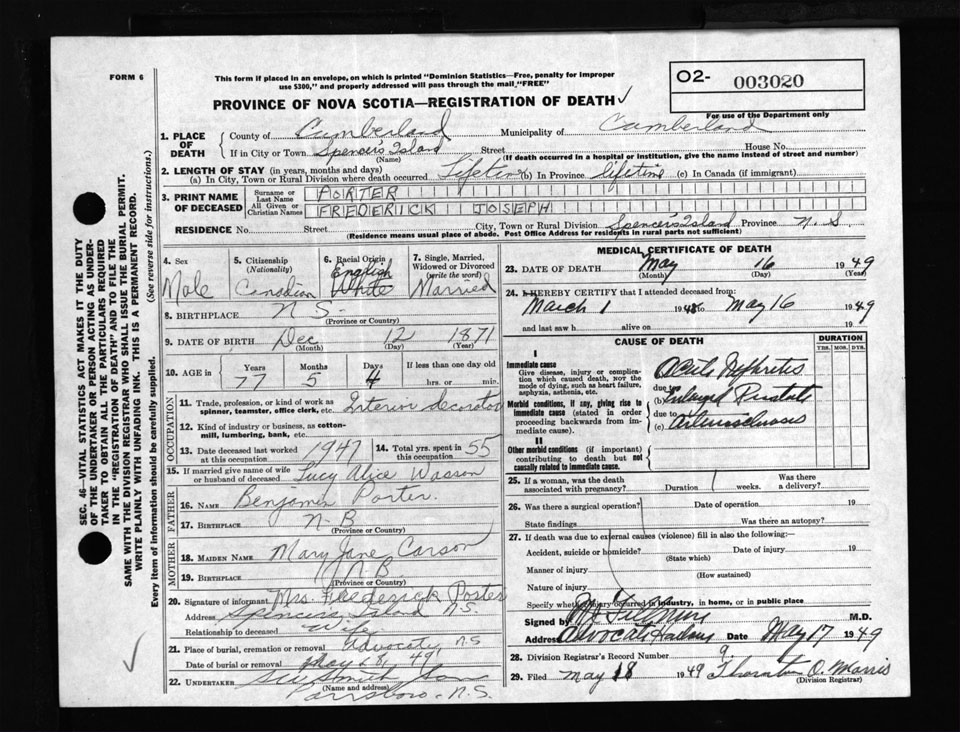 FORM 6
This form if placed in an envelope, on which is printed "Dominion Statistics—Free, penalty for improper
use $300," and properly addressed will pass through the mail "FREE"
O2- 003020
For use of the Department only
PROVINCE OF NOVA SCOTIA—REGISTRATION OF DEATH ✓
1. PLACE OF DEATH
County of Cumberland Municipality of Cumberland
If in City or Town Spencer's Island Street House No.
(Name) (If death occurred in a hospital or institution, give the name instead of street and number)
2. LENGTH OF STAY (in years, months and days)
(a) In City, Town or Rural Division where death occurred Lifetime (b) In Province lifetime (c) In Canada (if immigrant)
3. PRINT NAME OF DECEASED
Surname or Last Name PORTER
All Given or Christian Names FREDERICK JOSEPH
RESIDENCE No. Street City, Town or Rural Division Spencer's Island Province N. S
(Residence means usual place of abode. Post Office Address for residents in rural parts not sufficient)
4. Sex Male
5. Citizenship (Nationality) Canadian
6. Racial Origin English White
7. Single, Married, Widowed or Divorced (write the word) Married
8. BIRTHPLACE N S.
(Province or Country)
9. DATE OF BIRTH Dec 12 1871
(Month) (Day) (Year)
10. AGE in Years Months Days If less than one day old
77 5 4 hrs. or min.
OCCUPATION
11. Trade, profession, or kind of work as spinner, teamster, office clerk, etc. Interior decorator
12. Kind of industry or business, as cotton-mill, lumbering, bank, etc.
13. Date deceased last worked 1947 14. Total yrs. spent in 55
15. If married give name of wife or husband of deceased Lucy Alice Wasson
FATHER
16. Name Benjamin Porter.
17. Birthplace N-B
(Province or Country)
MOTHER
18. Maiden Name Mary Jane Carson
19. Birthplace N B
(Province or Country)
20. Signature of informant Mrs. Frederick Porter
Address Spencers Island N.S.
Relationship to deceased Wife
21. Place of burial, cremation or removal Advocate, N.S
Date of burial or removal May 49
22. UNDERTAKER Smith Son
(Name and address)
Parrsboro - N. S.
MEDICAL CERTIFICATE OF DEATH
23. DATE OF DEATH May 16 1949
(Month) (Day) (Year)
24. I HEREBY CERTIFY that I attended deceased from:
March 1 1948 to May 16 1949
and last saw h alive on 19
CAUSE OF DEATH
DURATION
YRS. MOS. DYS.
I
Immediate cause
Give disease, injury or complication which caused death, NOT the mode of dying, such as heart failure, asphyxia, asthenia, etc.
(a) Acute Nephritis
due to
Morbid conditions, if any, giving rise to immediate cause (stated in order proceeding backwards from immediate cause).
(b) Enlarged Prostate
due to
(c) Arteriosclerosis
II
Other morbid conditions (if important) contributing to death but not causally related to immediate cause.
25. If a woman, was the death associated with pregnancy? Duration weeks. Was there a delivery?
26. Was there a surgical operation? Date of operation 19
State findings Was there an autopsy?
27. If death was due to external causes (violence) fill in also the following:—
Accident, suicide or homicide? Date of injury 19
(State which)
Manner of injury
(How sustained)
Nature of injury
Specify whether injury occurred in industry, in home, or in public place
Signed by Fillmore M.D.
Address Advocate Harbour Date May 17 1949
28. Division Registrar's Record Number 9.
29. Filed May 18 1949 Thornton O. Morris
(Division Registrar)
SEC. 46—VITAL STATISTICS ACT MAKES IT THE DUTY
OF THE UNDERTAKER OR PERSON ACTING AS UNDER-
TAKER TO OBTAIN ALL THE PARTICULARS REQUIRED
IN THE "REGISTRATION OF DEATH" AND TO FILE THE
SAME WITH THE DIVISION REGISTRAR WHO SHALL ISSUE THE BURIAL PERMIT.
WRITE PLAINLY WITH UNFADING INK. THIS IS A PERMANENT RECORD.
Every item of information should be carefully supplied. (See reverse side for instructions.)